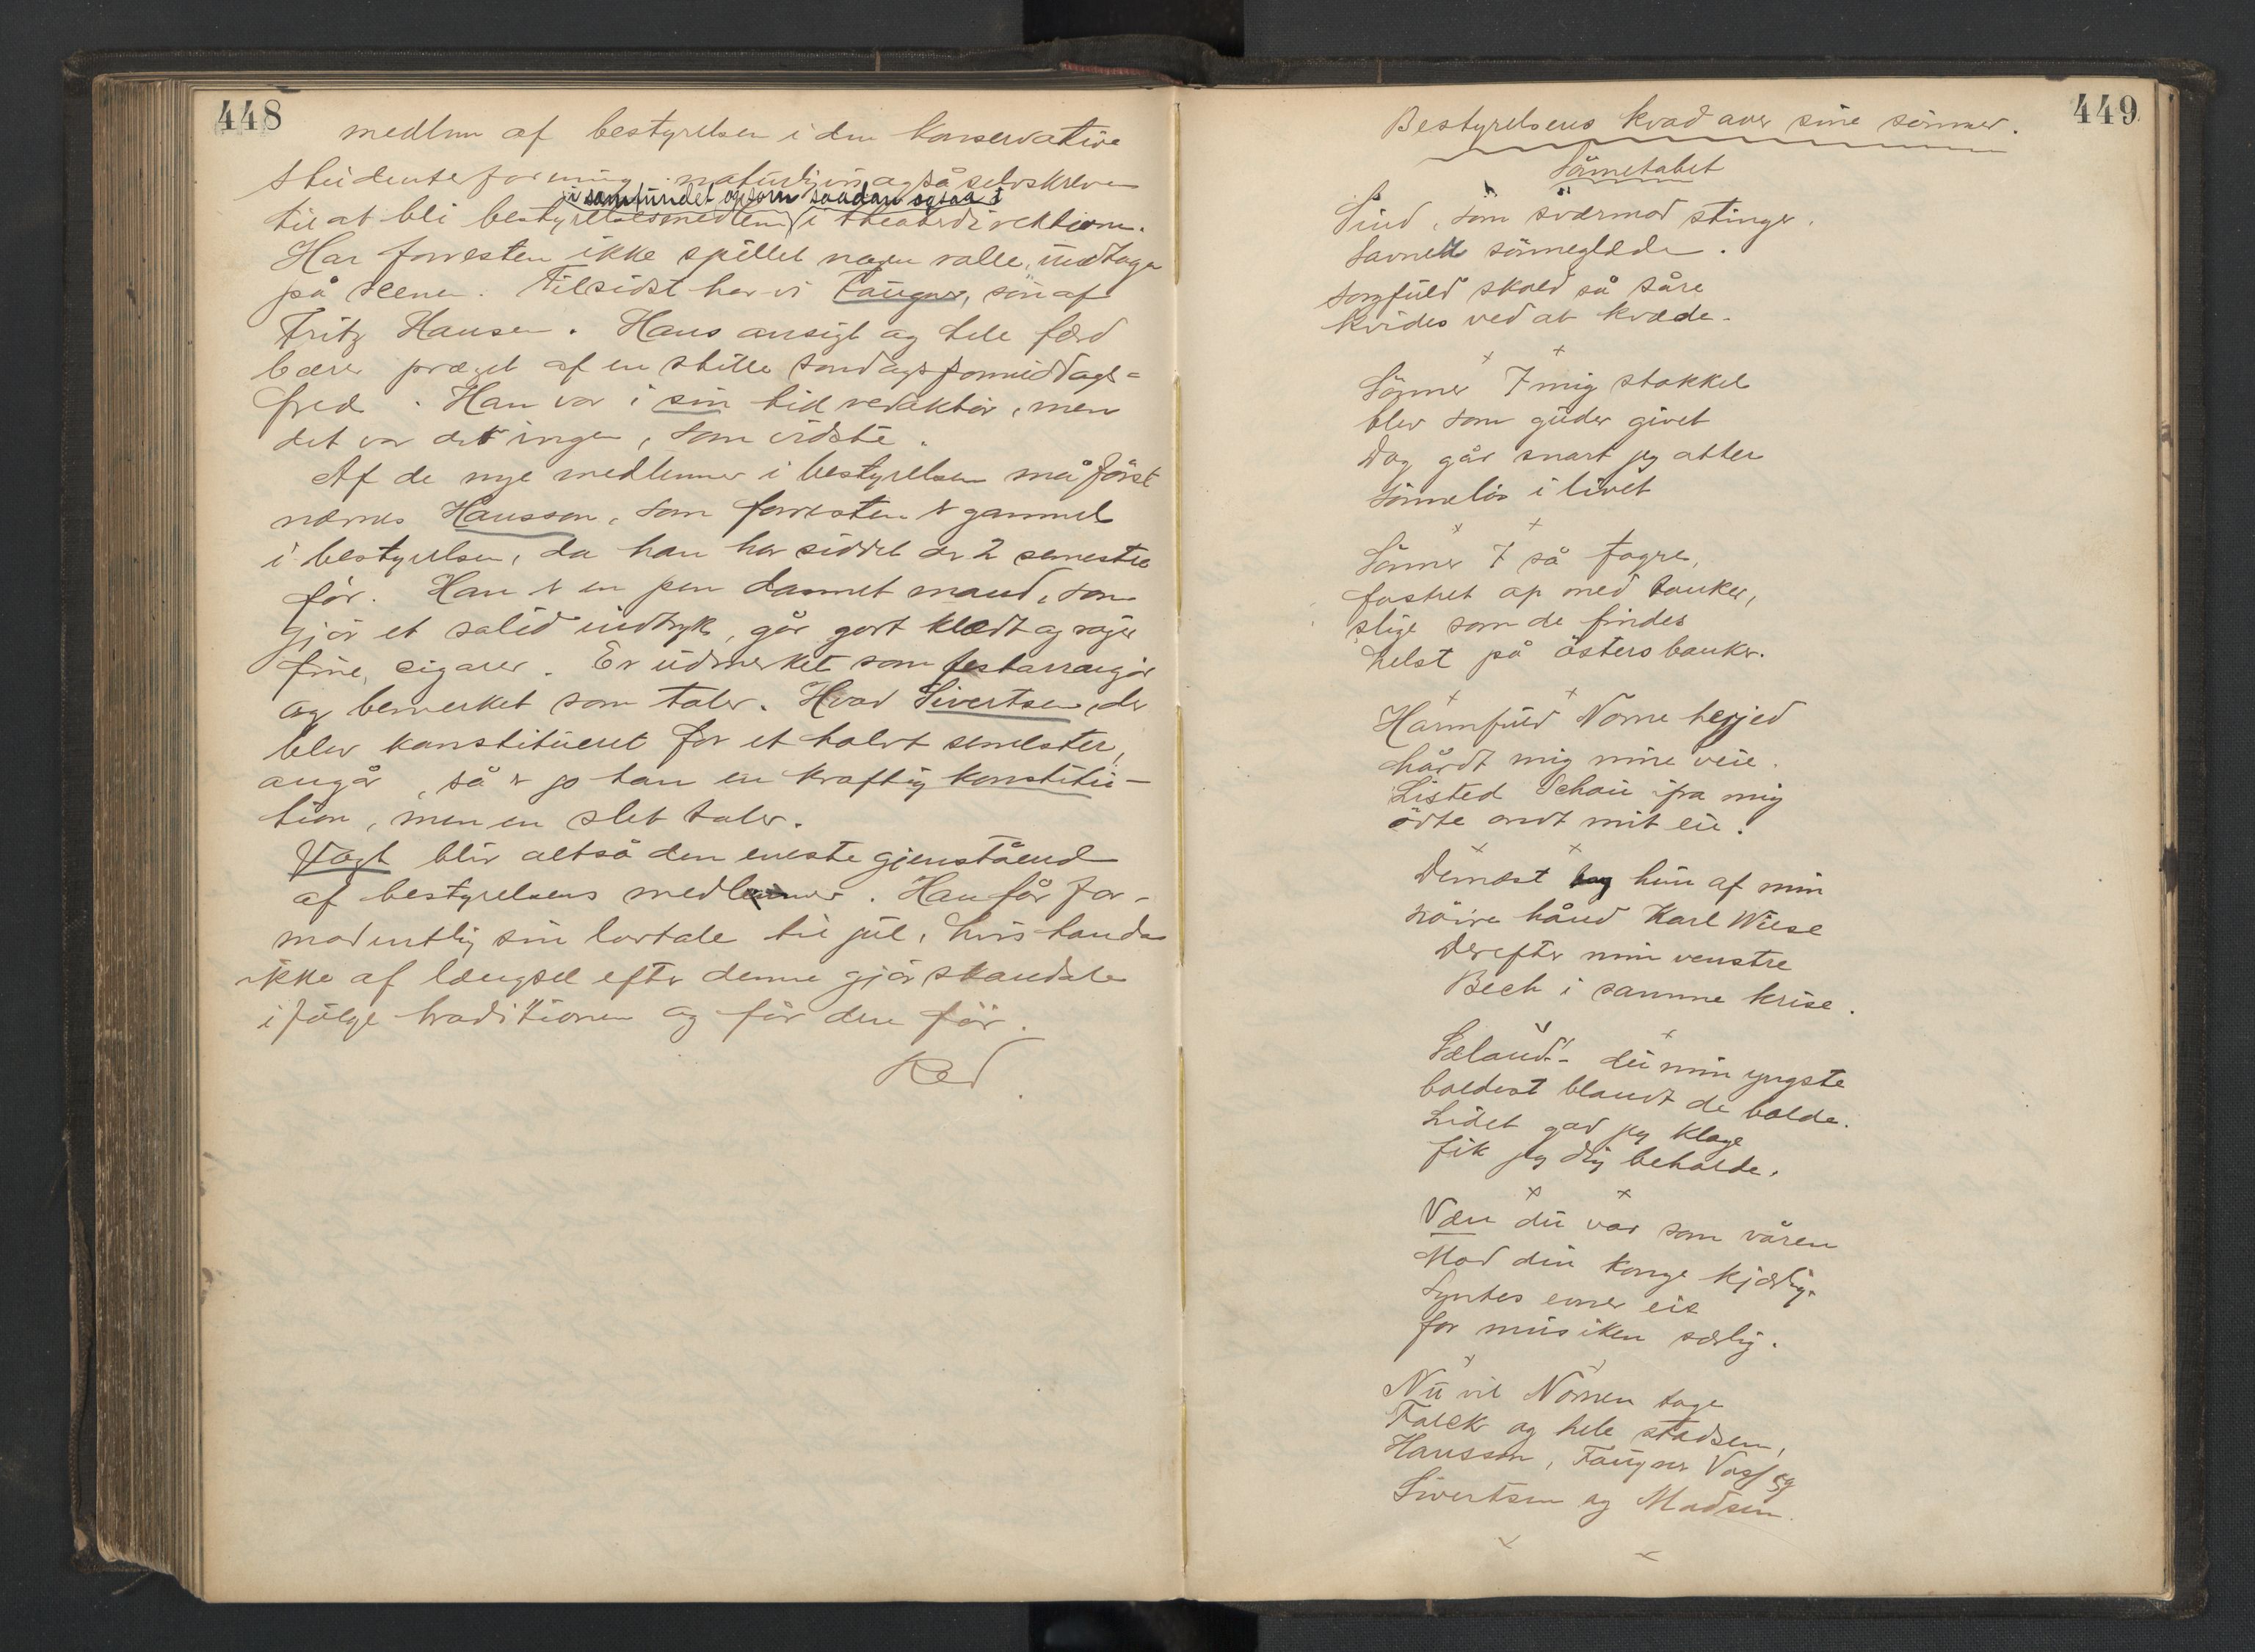 448
medlem af bestyrelsen i den konservative
Studenterforening naturligvis også selvskreven
i samfundet og som saadan ogsaa i
til at bli bestyrelsesmedlem i theaterdirektionen.
Har forresten ikke spillet nogen rolle, undtagen
på scenen. Tilsidst har vi Faugner, søn af
Fritz Hansen. Hans ansigt og hele færd
bærer præget af en stille søndagsformiddags=
fred. Han var i sin tid redaktör, men
det var det ingen, som vidste.
Af de nye medlemmer i bestyrelsen må først
nævnes Hansson, som forresten er gammel
i bestyrelsen, da han har siddet der 2 semestre
för. Han er en pen dannet mand, som
gjör et solid indtryk, går godt klædt og røger
fine cigarer. Er udmerket som festarrangör
og bemerket som taler. Hvad Sivertsen, der
blev konstitueret for et halvt semester,
angår, så er jo han en kraftig konstitu-
tion, men en slet taler.
Vogt blir altså den eneste gjenstående
af bestyrelsens medlemmer. Han får for-
modentlig sin lovtale til jul, hvis han da
ikke af længsel efter denne gjör skandale
i fölge traditionen og får den för.
Red
449
Bestyrelsens kvad over sine sönner.
Sönnetabet
Sind, som sværmod stinger,
Savnets sönneglæde.
Sorgfuld skald så såre
kvides ved at kvæde.
Sönner 7 mig stakkel
blev som guder givet
Dog går snart jeg atter
sönnelös i livet
Sönner 7 så fagre,
fostret op med tanker,
slige som de findes
helst på östersbanker.
Harmfuld Norne hegjed
hårdt mig mine veie.
Listed Schau ifra mig
ödte ondt mit eie.
Dernæst hun af min
höire hånd Karl Wiese
Derefter min venstre
Bech i samme krise.
Sæland! - du min yngste
boldest blandt de bolde.
Lidet gad jeg klage
fik jeg dig beholde.
Væn du var som våren
Mod din konge kjærlig.
Syntes emer eis
for musiken særlig.
Nu vil Nornen tage
Falck og hele stadsen,
Hansson, Faugner Vogt og
Sivertsen og Madsen.